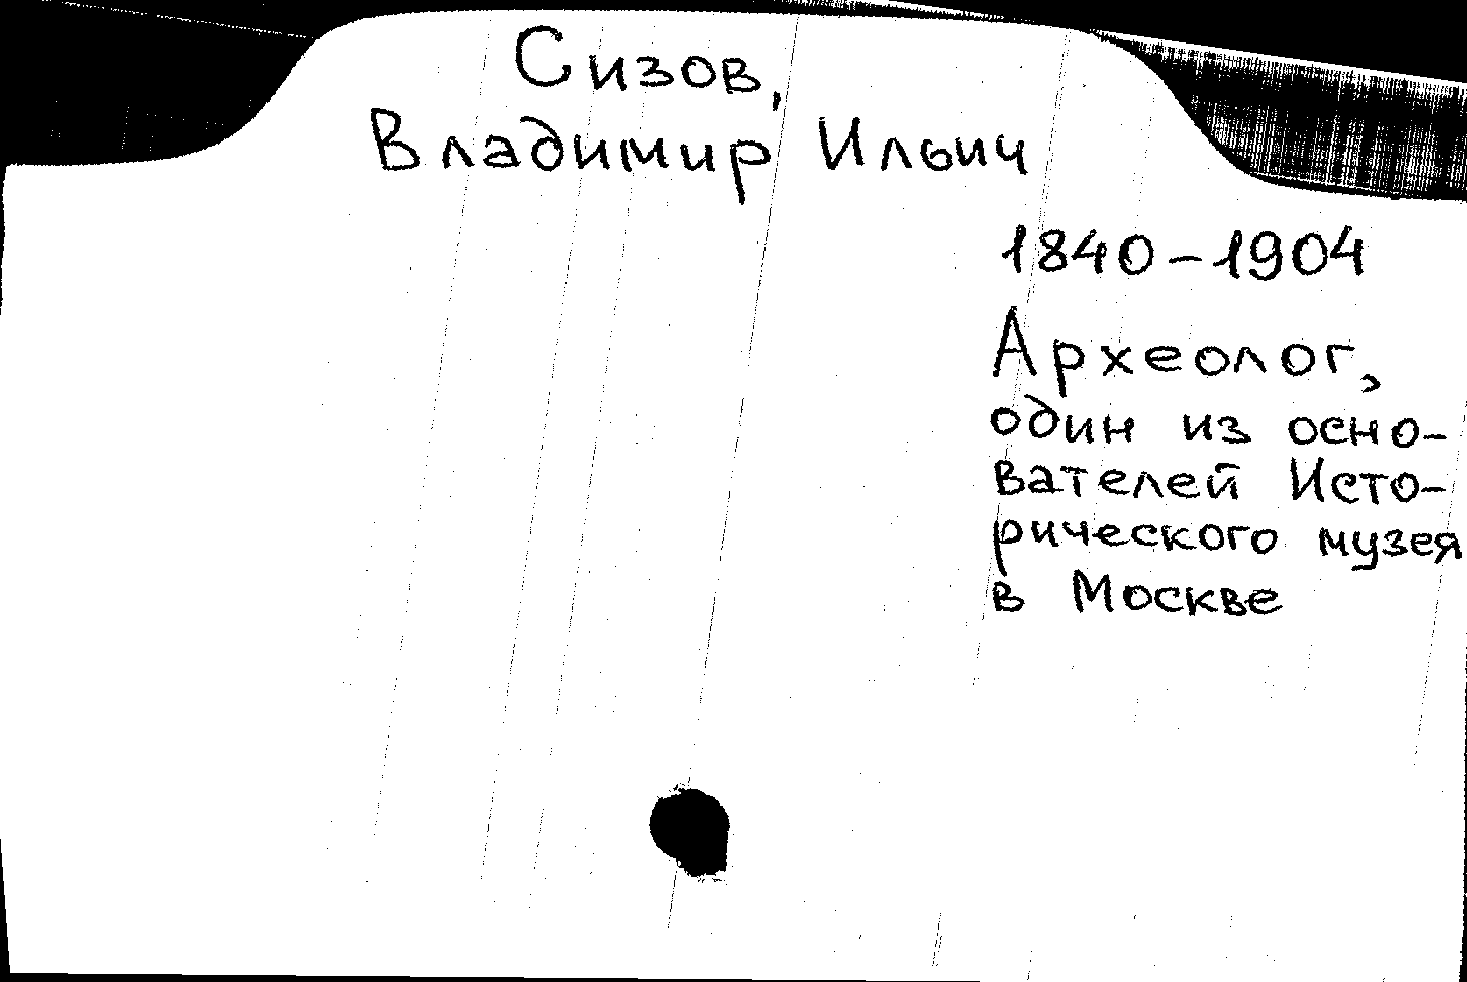 Сизов,
Владимир Ильич
1840-1904
Археолог,
один из осно-
вателей Исто-
рического музея
в Москве